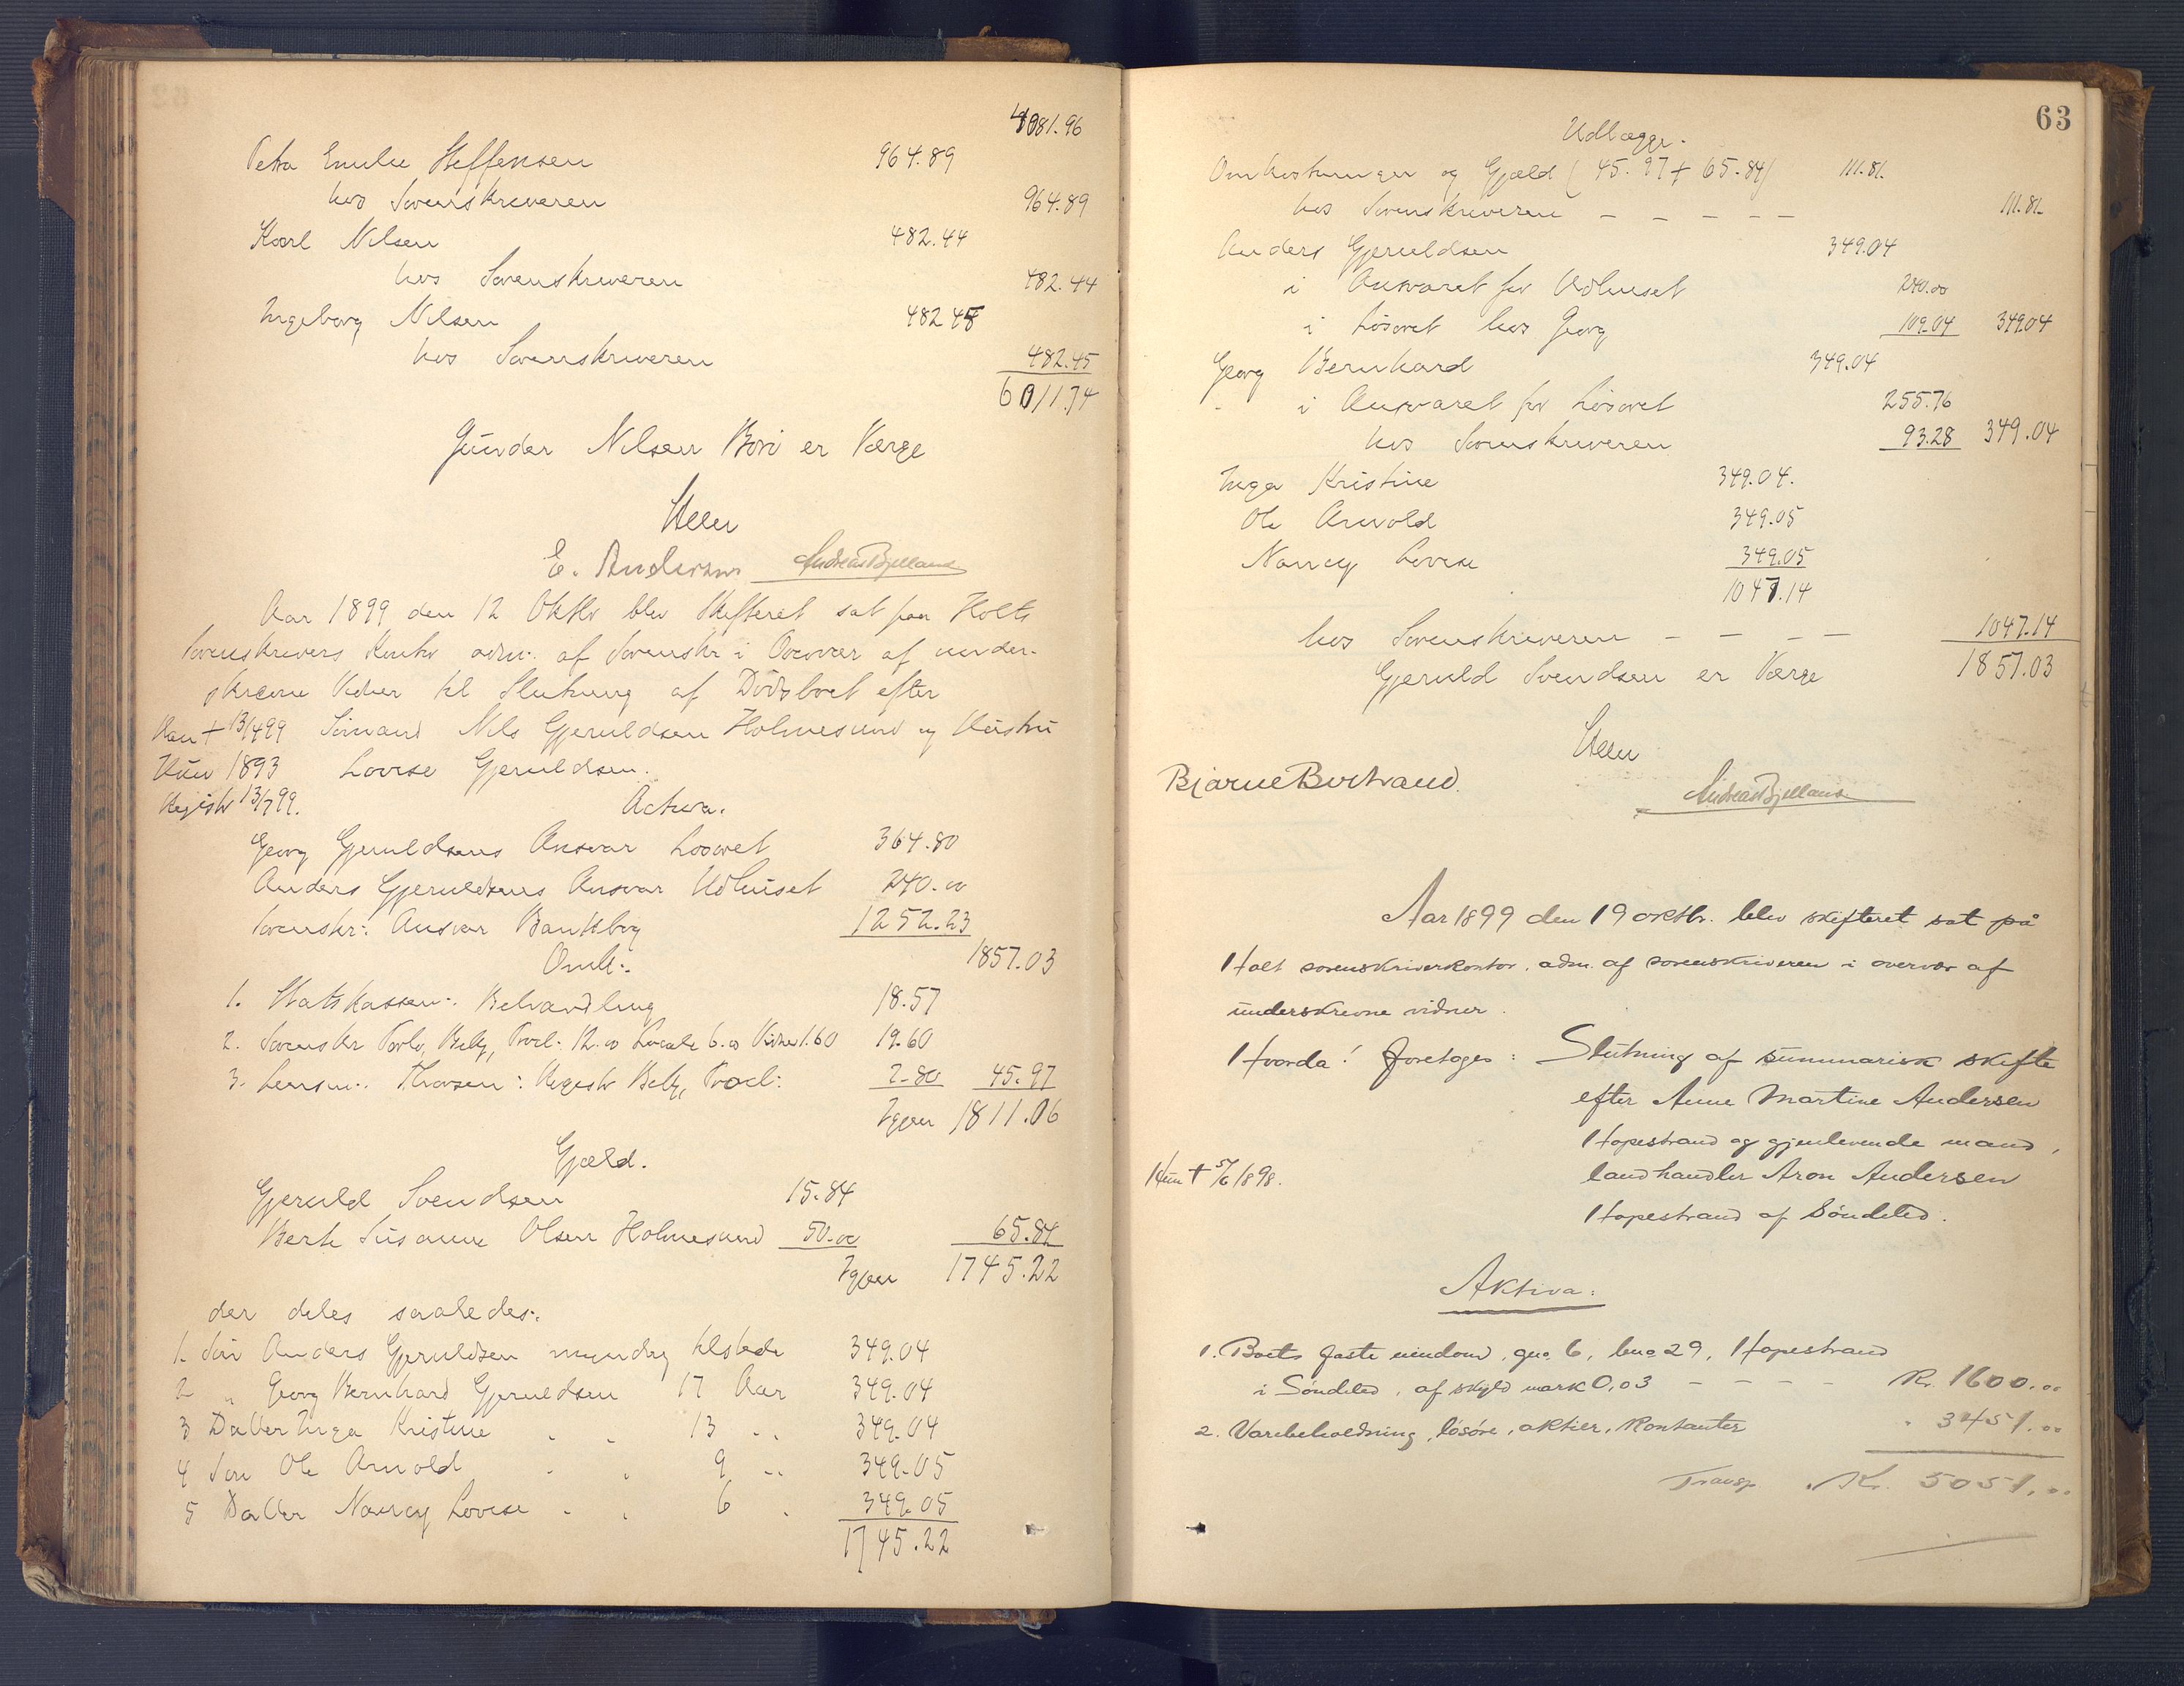 4081.96
Petra Emilie Steffensen 964.89
hos Sorenskriveren 964.89
Karl Nilsen 482.44
hos Sorenskriveren 482.44
Ingeborg Nilsen 482 45
hos Sorenskriveren 482.45
6011.74
Gunder Nilsen Bori er Værge
Steen
E. Andersen Andreas Bjelland
Aar 1899 den 12 Oktbr blev Skifteret sat paa Holts
Sorenskrivers Kontor adm. af Sorenskr i Overvær af under-
skrevne Vidner til Slutning af Dødsboet efter
Han + 13/4 99 Sømand Nils Gjeruldsen Holmesund og Hustru
Hun 1893 Lovise Gjeruldsen.
Registr 13/7 99. Activa.
Georg Gjeruldsens Ansvar Løsøret 364.80
Anders Gjeruldsens Ansvar Udhuset 240.00
Sorenskr: Ansvar Bankbog 1252.23
1857.03
Omk:
1. Statskassen: Behandling 18.57
2. Sorenskr Forlv, Bekj, Procl. 12.00 Locale 6.00 Vidner 1.60 19.60
3. Lensm: Thorsen: Registr Bekj, Procl: 2-80 45.97
Igjen 1811.06
Gjæld.
Gjeruld Svendsen 15.84
Berte Susanne Olsen Holmesund 50.00 65.84
Igjen 1745.22
der deles saaledes:
1. Søn Anders Gjeruldsen myndig tilstede 349.04
2 " Georg Bernhard Gjeruldsen 17 Aar 349.04
3 Datter Inga Kristine " " 13 " 349.04
4 Søn Ole Arnold " " 9 " 349.05
5 Datter Nancy Lovise " " 6 " 349.05
1745.22
63
Udlægge.
Omkostninger og Gjæld (45.97 + 65.84) 111.81.
hos Sorenskriveren - - - - - 111.81.
Anders Gjeruldsen 349.04
i Ansvaret for Udhuset 240.00
i Løsøret hos Georg 109.04 349.04
Georg Bernhard 349.04
i Ansvaret for Løsøret 255.76
hos Sorenskriveren 93.28 349.04
Inga Kristine 349.04.
Ole Arnold 349.05
Nancy Lovise 349.05
1047.14
hos Sorenskriveren - - - - 1047.14
1857.03
Gjeruld Svendsen er Værge
Steen
Bjarne Bertrand. Andreas Bjelland
Aar 1899 den 19 oktbr. blev skifteret sat på
Holt sorenskriverkontor, adm. af sorenskriveren i overvær af
underskrevne vidner.
Hvorda! foretoges: Slutning af summarisk skifte
efter Anne Martine Andersen
Hopestrand og gjenlevende mand,
Hun + 5/6 1898. landhandler Aron Andersen
Hopestrand af Søndeled.
Aktiva:
1. Boets faste eiendom, gno. 6, bno 29, Hopestrand
i Søndeled, af skyld mark 0,03 - - - - Kr. 1600.00
2. Varebeholdning, løsøre, aktier, kontanter " 3451.00
Transp. Kr. 5051.00